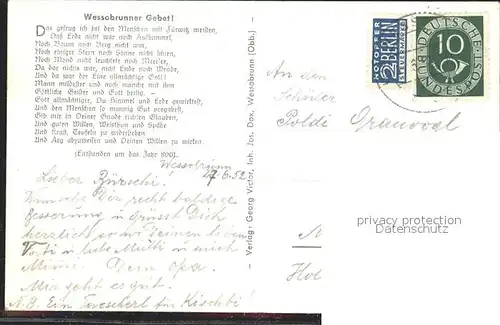 Wessobrunner Gebet!
Das gefrug ich bei den Menschen mit Fürwitz meisten,
Daß Erde nicht war noch Aufhimmel,
Noch Baum noch Berg nicht war,
Noch einiger Stern noch Sonne nicht schien,
Noch Mond nicht leuchtete noch Meersee,
Da das nichts war, nicht Ende noch Wende,
Und da war der Eine allmächtige Gott!
Mann mildester und noch manche mit ihm
Göttliche Geister und Gott heilig. –
Gott allmächtiger, Du Himmel und Erde gewirktest,
und den Menschen so mannig Gut vorgabst,
Gib mir in Deiner Gnaden rechten Glauben,
Und guten Willen, Weistum und Spähe
Und Kraft, Teufeln zu widerstehen
Und Arg abzuweisen und Deinen Willen zu wirken.
(Entstanden um das Jahr 800).
Wessobrunn
7.6.52
Lieber
Wünsche Dir recht baldige
Besserung u grüsst Dich
herzlich so wie Deinen lieben
Vati u liebe Mutti u auch
Mimi. Dein Opa.
Mir geht es gut.
N.B. Ein
Verlag: Georg Victor, Inh. Jos. Dax, Wessobrunn (Obb.)
NOTOPFER
2 BERLIN
STEUERMARKE
DEUTSCHE BUNDESPOST
10
An den
Schüler
Poldi
privacy protection
Datenschutz